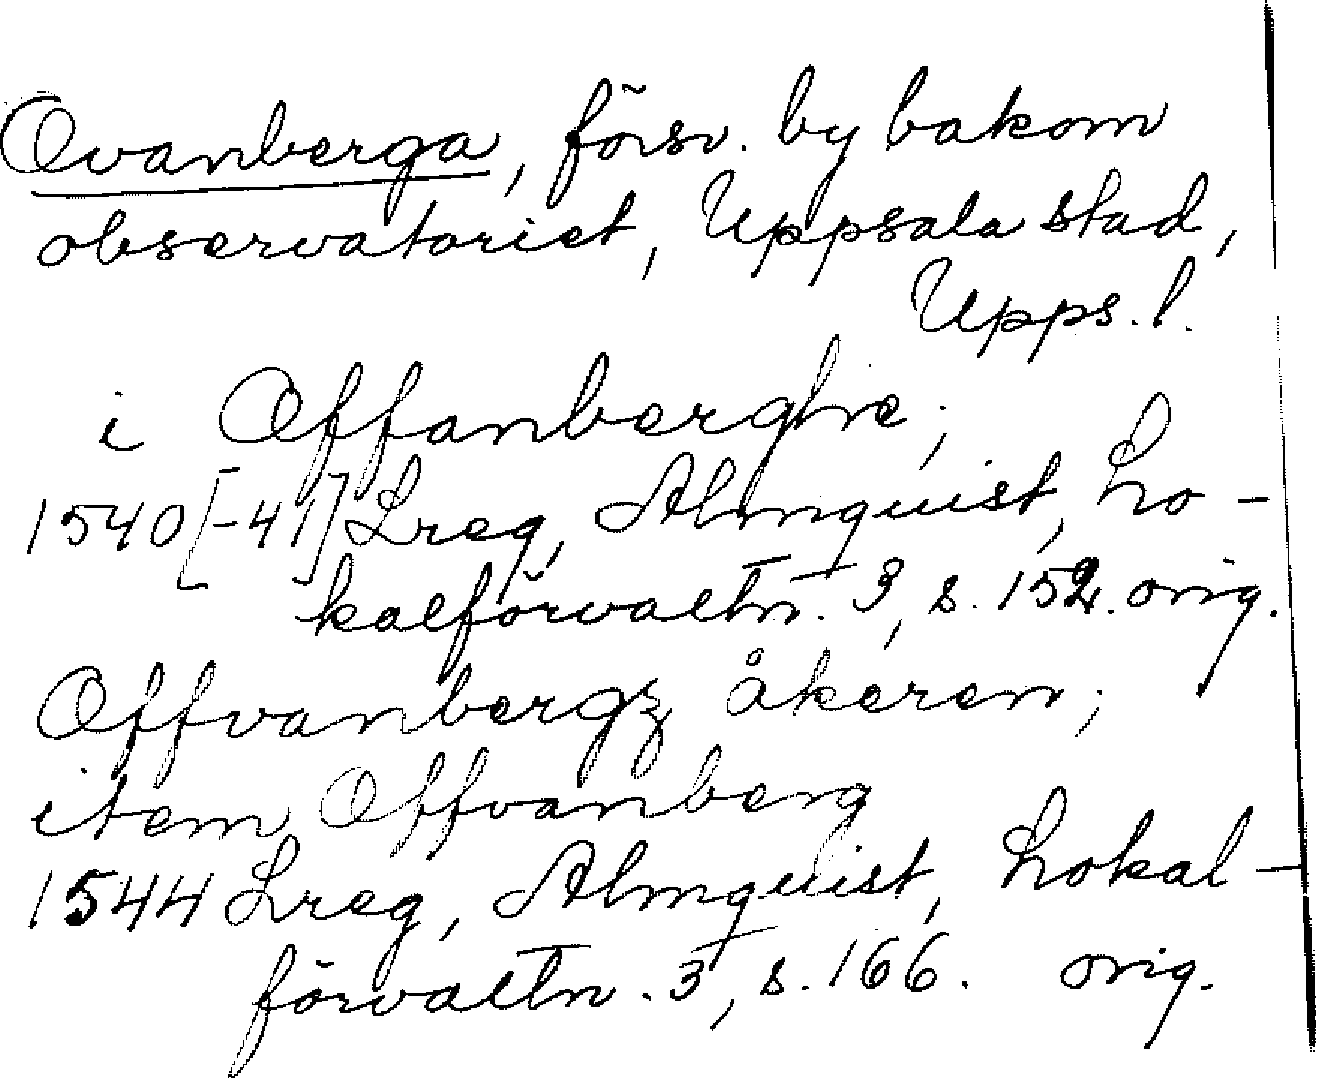 Ovanberga, försv. by bakom
observatoriet, Uppsala stad,
Upps. l.
i Offanberghe;
1540[-41] Lreg, Almquist, Lo-
kalförvaltn. 3, s. 152. orig.
Offvanbergz åkeren;
item Offvanberg
1544 Lreg, Almquist, Lokal-
förvaltn. 3, s. 166. orig.